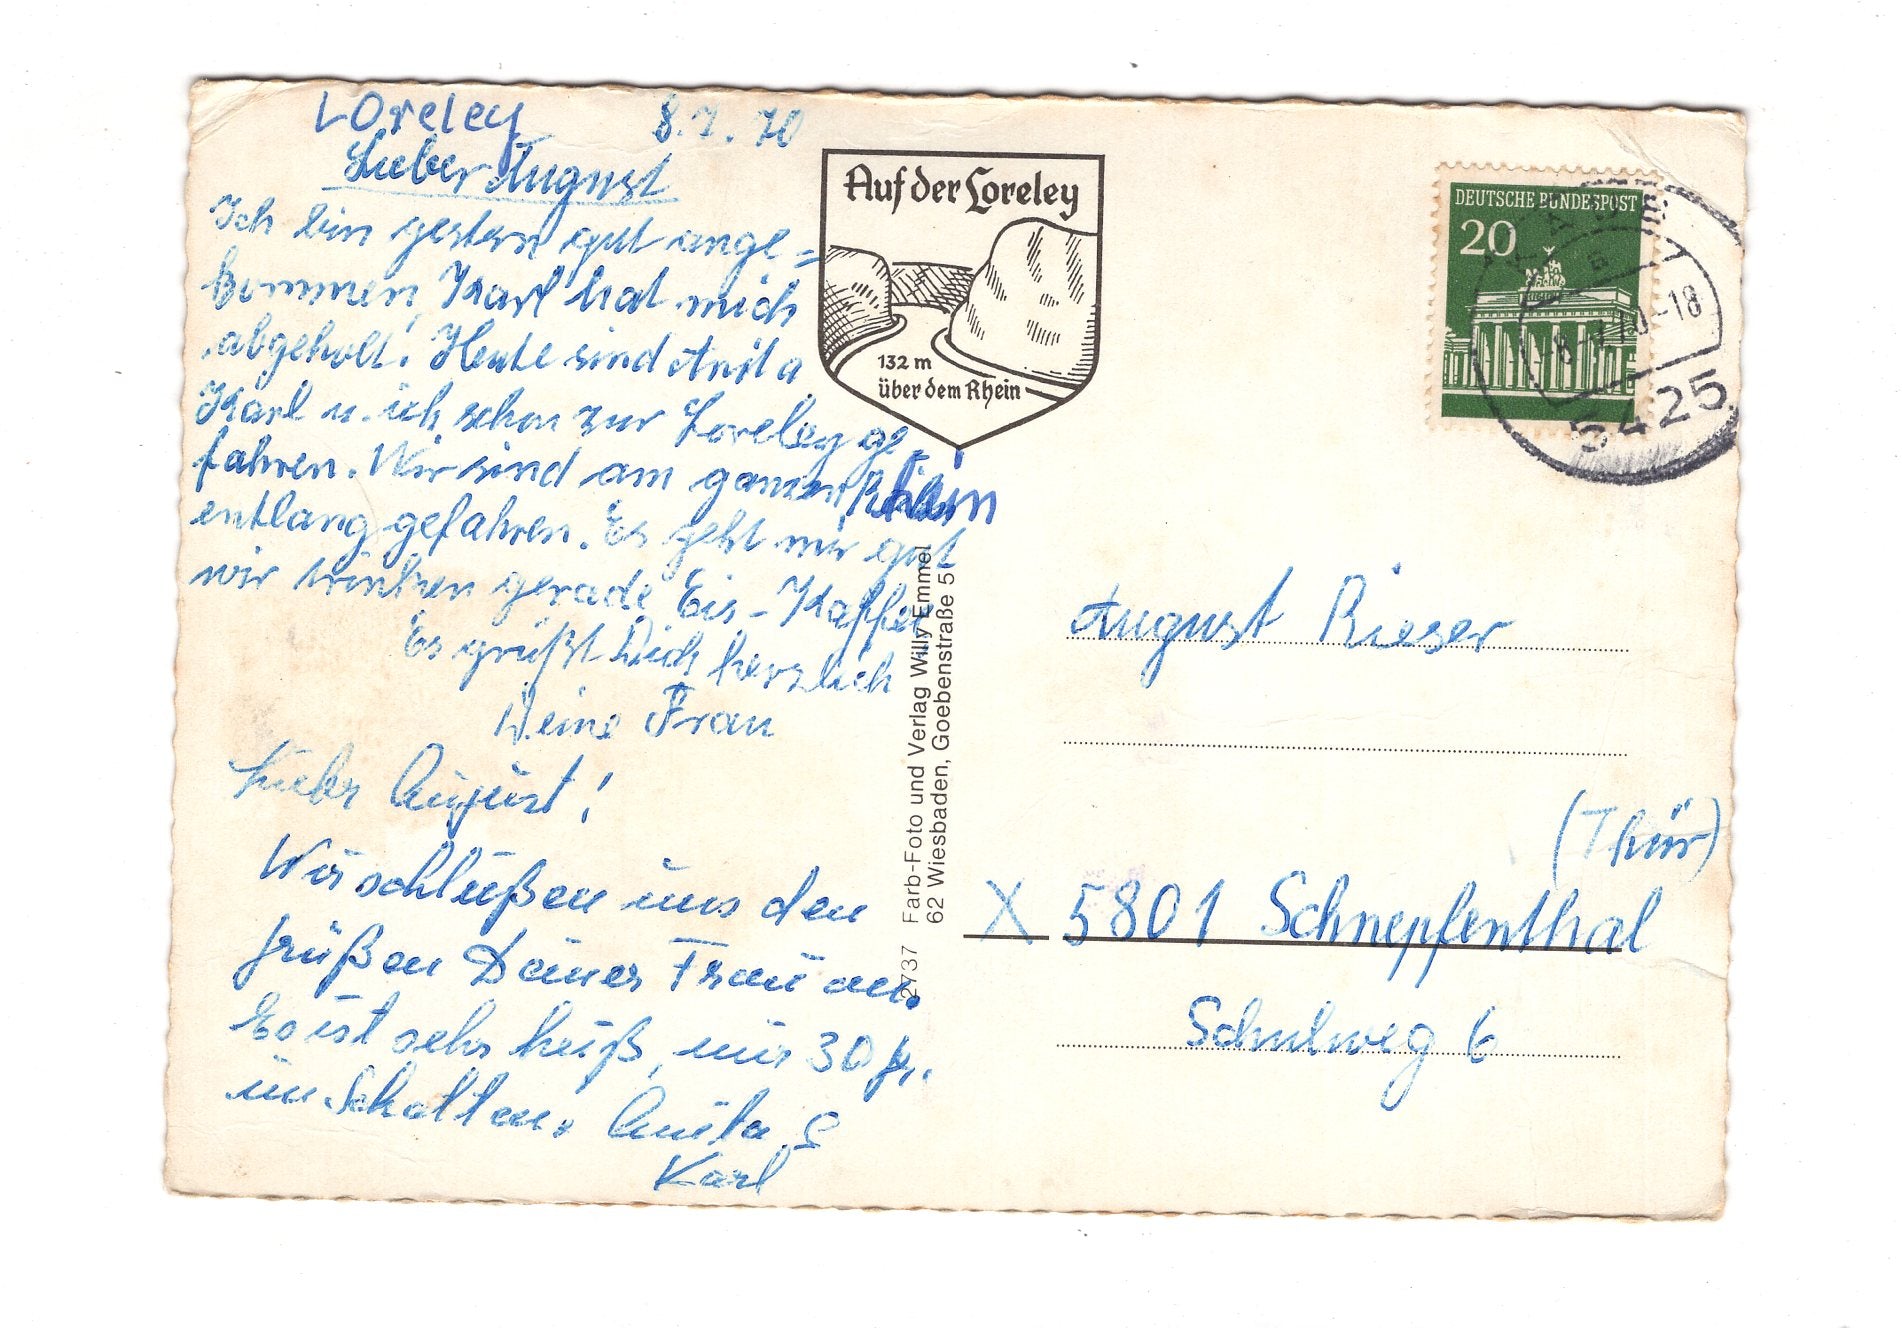 Loreley 8.7.70
Lieber August
Ich bin gestern gut ange=
kommen, Karl hat mich
abgeholt! Heute sind Anita
Karl u. ich schon zur Loreley ge
fahren. Wir sind am ganzen Rhein
entlang gefahren. Es geht mir gut
wir trinken gerade Eis-Kaffee
Es grüßt Dich herzlich
Deine Frau
Lieber August!
Wir schließen uns den
Grüßen Deiner Frau an.
Es ist sehr heiß, nur 30 Gr.
im Schatten. Anita &
Karl
Auf der Loreley
132 m
über dem Rhein
2737 Farb-Foto und Verlag Willy Emmel
62 Wiesbaden, Goebenstraße 5
DEUTSCHE BUNDESPOST
20
-8.-7.70-18
5425
August Rieser
(Thür)
X 5801 Schnepfenthal
Schulweg 6